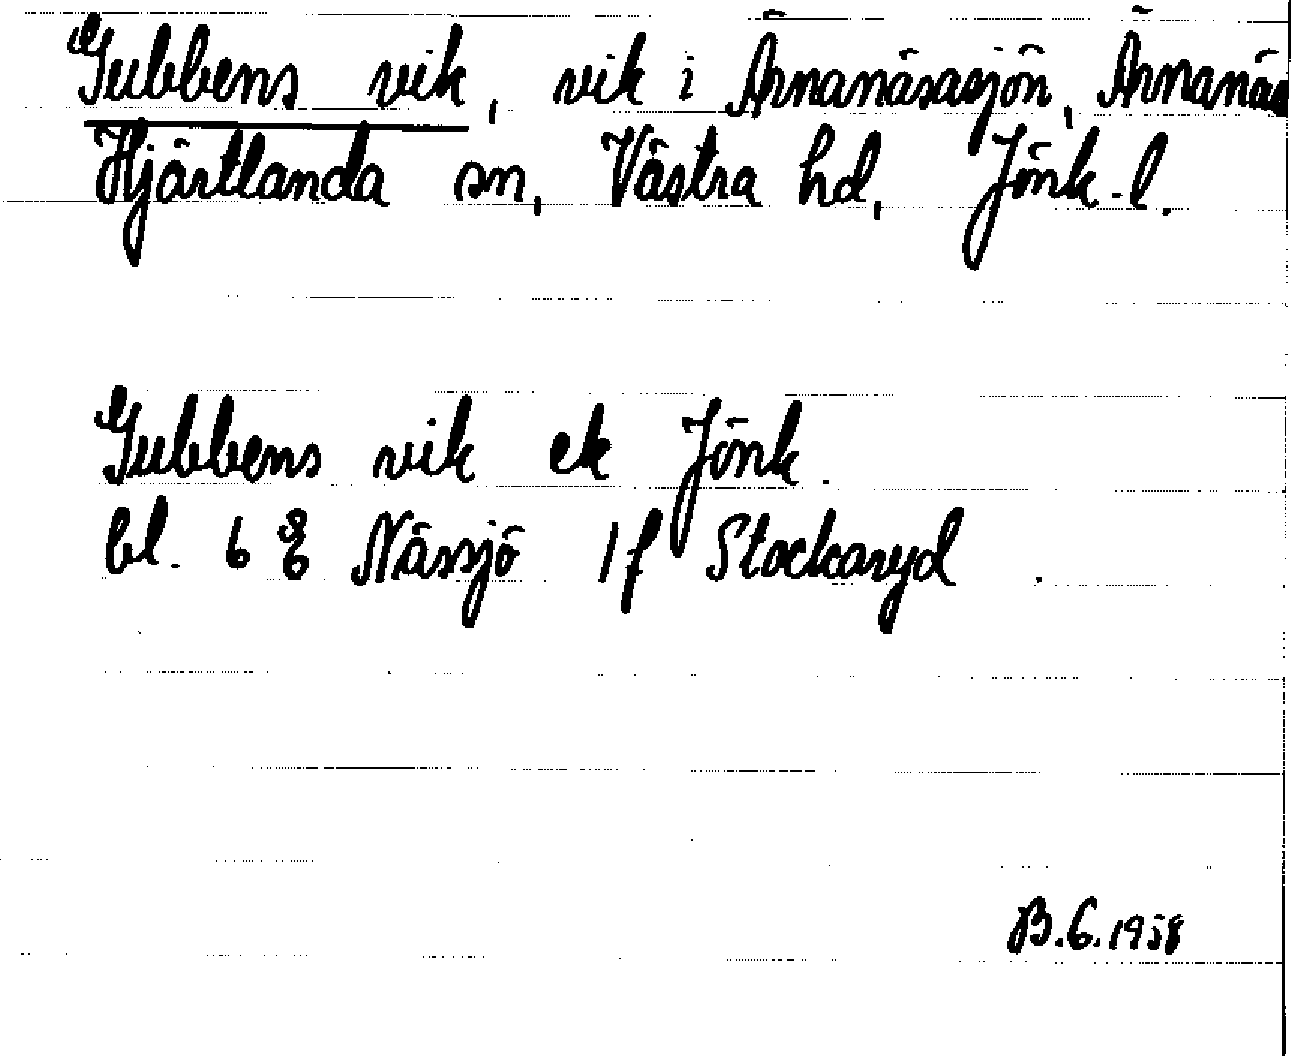 Gubbens vik, vik i Ärnanäsasjön, Ärnanäs
Hjärtlanda sn, Västra hd, Jönk. l.
Gubbens vik ek Jönk.
bl. 6 E Nässjö 1f Stockaryd.
B.G. 1958